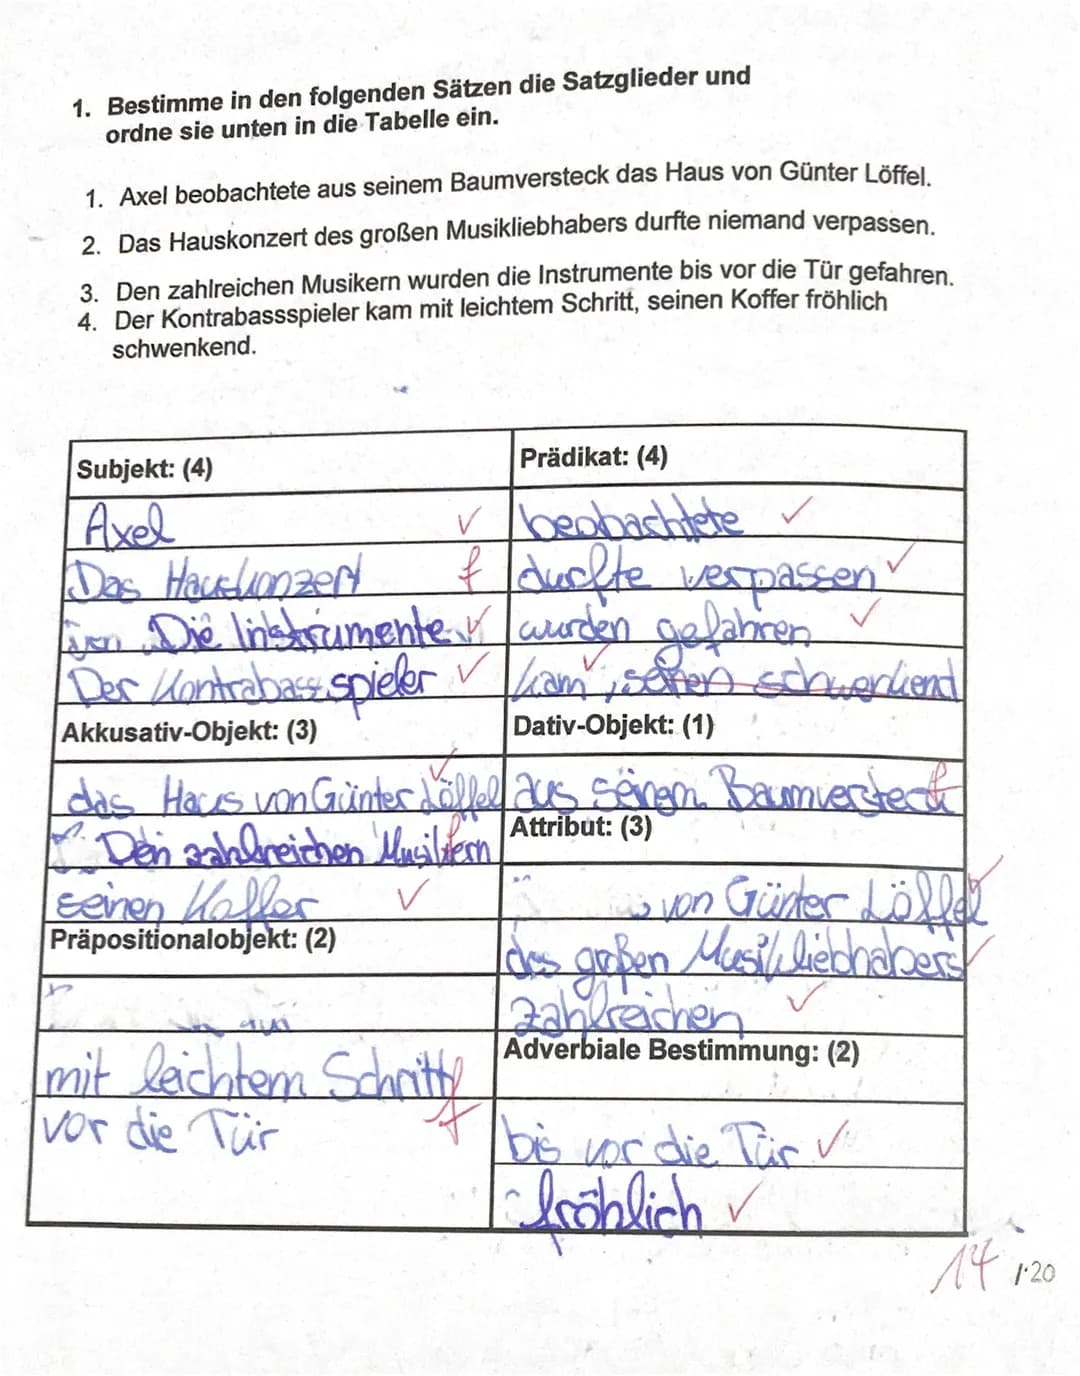 1. Bestimme in den folgenden Sätzen die Satzglieder und
ordne sie unten in die Tabelle ein.
1. Axel beobachtete aus seinem Baumversteck das Haus von Günter Löffel.
2. Das Hauskonzert des großen Musikliebhabers durfte niemand verpassen.
3. Den zahlreichen Musikern wurden die Instrumente bis vor die Tür gefahren.
4. Der Kontrabassspieler kam mit leichtem Schritt, seinen Koffer fröhlich
schwenkend.
Subjekt: (4)
Axel ✓
Das Hauskonzert f
Die Instrumente ✓
Der Kontrabassspieler ✓
Prädikat: (4)
beobachtete ✓
durfte verpassen ✓
wurden gefahren ✓
kam ✓, schwenkend
Akkusativ-Objekt: (3)
das Haus von Günter Löffel ✓
Den zahlreichen Musikern f
seinen Koffer ✓
Dativ-Objekt: (1)
aus seinem Baumversteck f
Attribut: (3)
von Günter Löffel ✓
des großen Musikliebhabers ✓
zahlreichen ✓
Präpositionalobjekt: (2)
mit leichtem Schritt f
vor die Tür f
Adverbiale Bestimmung: (2)
bis vor die Tür ✓
fröhlich ✓
14 /·20